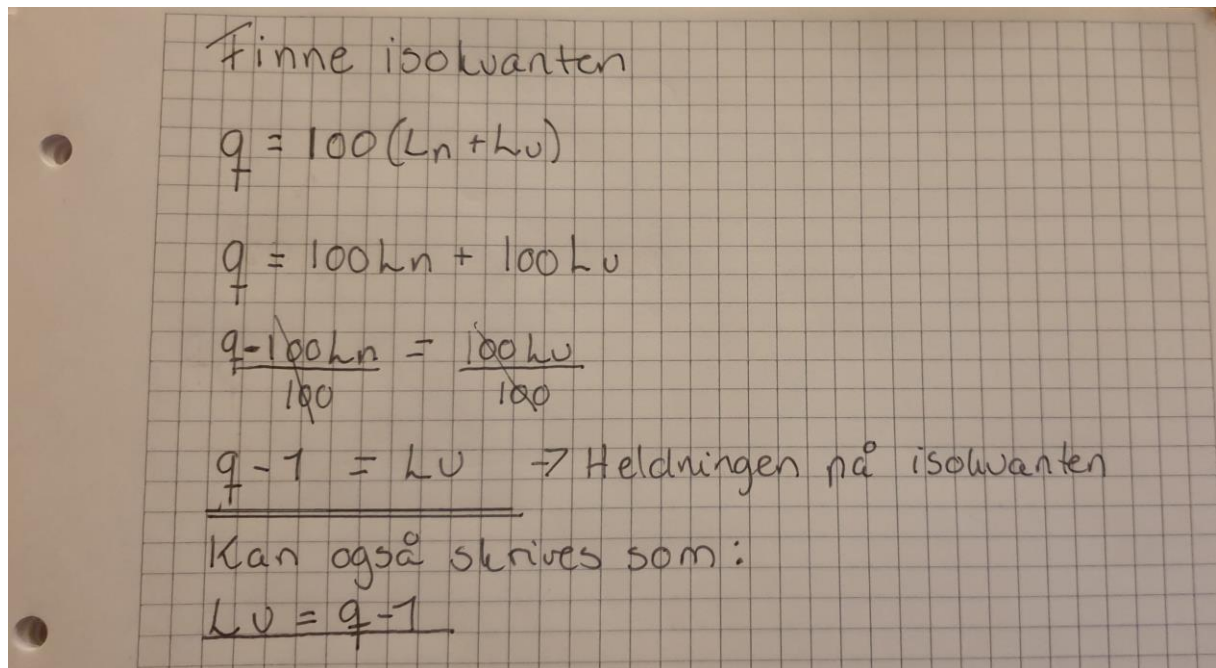 Finne isokvanten
q = 100(Ln + Lu)
q = 100Ln + 100Lu
q-100Ln / 100 = 100Lu / 100
q - 1 = Lu → Heldningen på isokvanten
Kan også skrives som:
Lu = q - 1